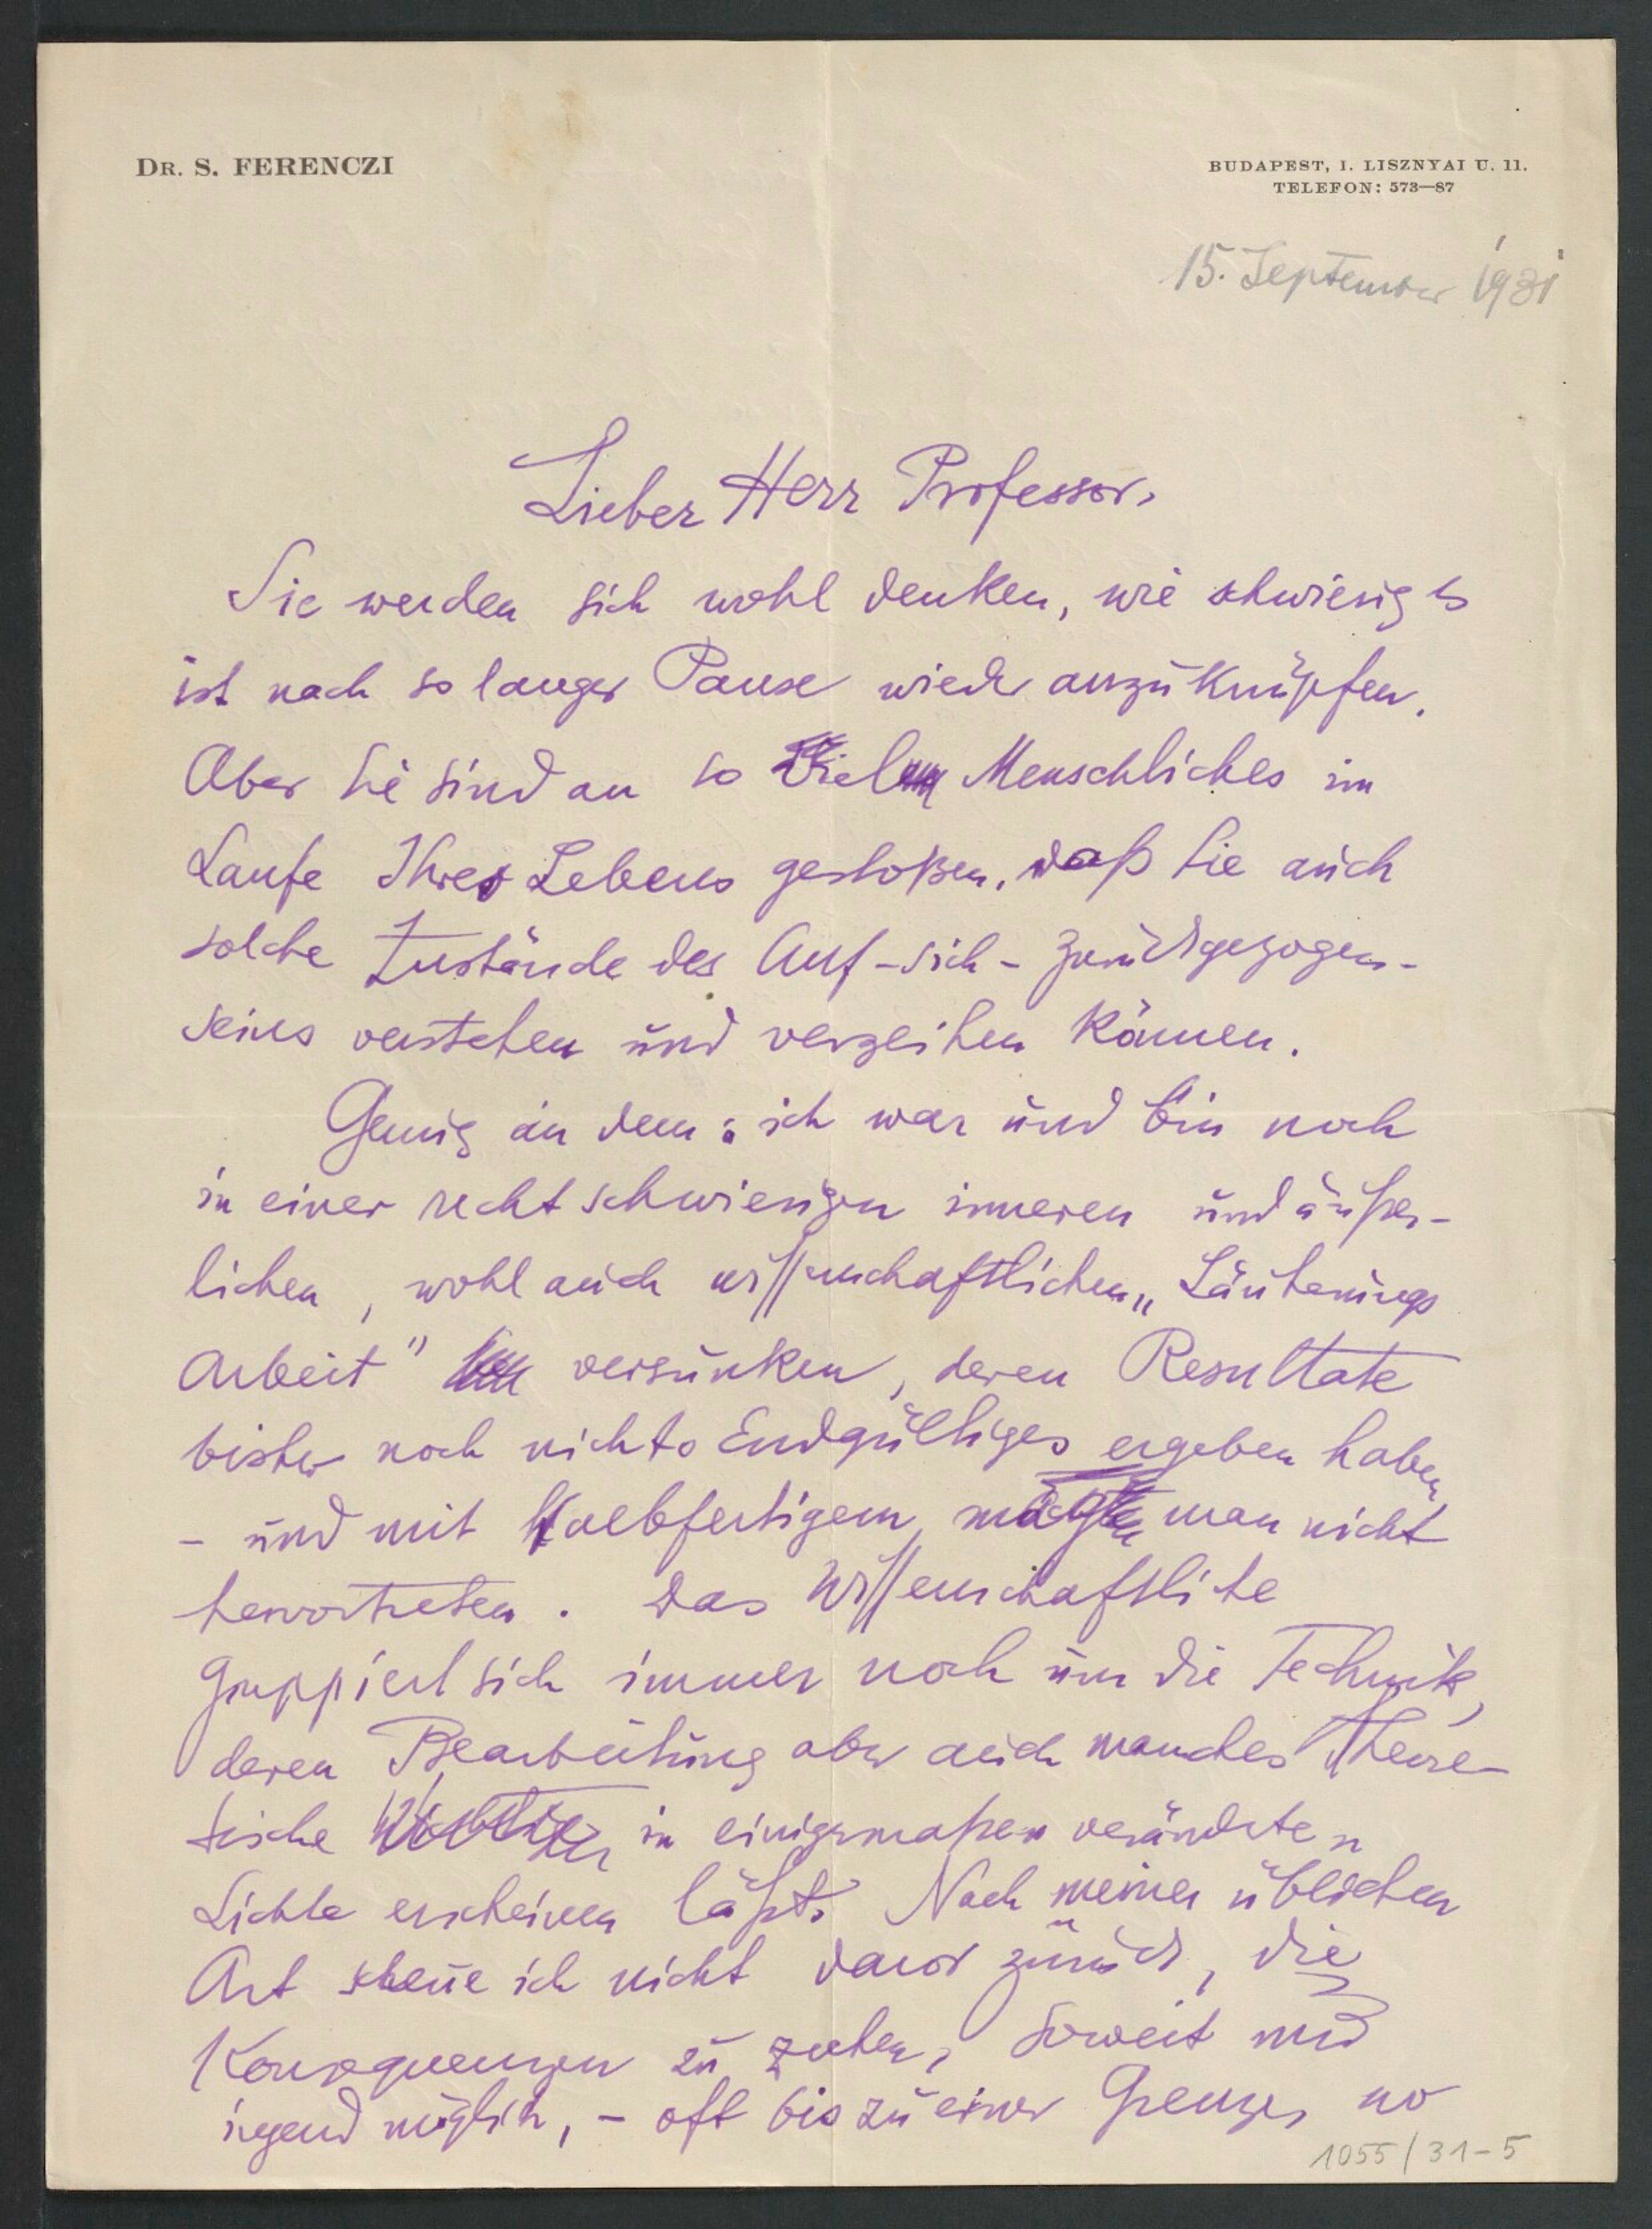 DR. S. FERENCZI
BUDAPEST, I. LISZNYAI U. 11.
TELEFON: 573—87
15. September 1931
Lieber Herr Professor,
Sie werden sich wohl denken, wie schwierig es
ist nach so langer Pause wieder anzuknüpfen.
Aber Sie sind an so Viel Menschliches im
Laufe Ihres Lebens gestoßen, daß Sie auch
solche Zustände des Auf-sich-zurückgezogen-
seins verstehen und verzeihen können.
Genug an dem: ich war und bin noch
in einer recht schwierigen inneren und äußer-
lichen, wohl auch wissenschaftlichen „Läuterungs
Arbeit" versunken, deren Resultate
bisher noch nichts Endgültiges ergeben haben
- und mit Halbfertigem man nicht
hervortreten. Das Wissenschaftliche
gruppiert sich immer noch um die Technik,
deren Bearbeitung aber auch manches Theore-
tische in einigermaßen veränderten
Lichte erscheinen läßt. Nach meiner üblichen
Art scheue ich nicht davor zurück, die
Konsequenzen zu ziehen, soweit mir
irgend möglich, - oft bis zu einer Grenze, wo
1055/31-5